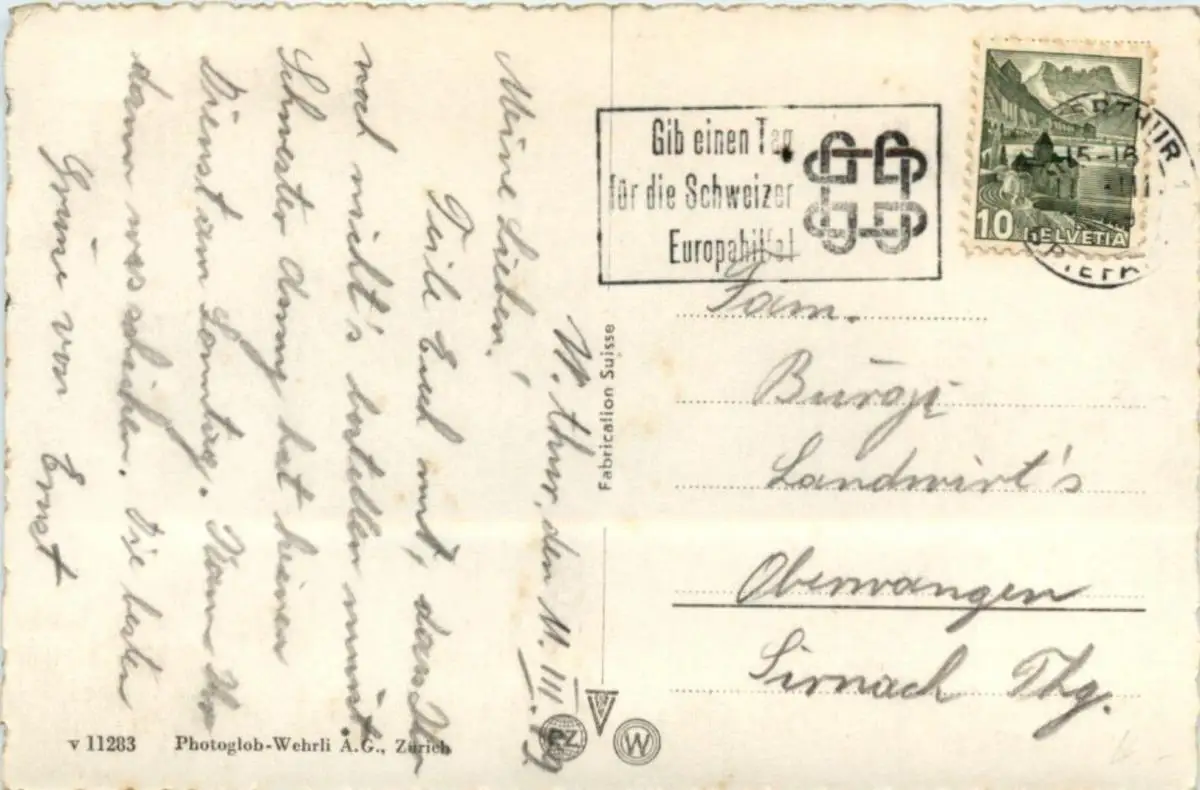 W. thur, den 11. III.
Meine Lieben,
Teile Euch mit, dass Ihr
noch nicht's bestellen müsst.
Schwester Anny hat keinen
Dienst am Sonntag. Ihr
dann was. Die besten
Grüsse von Ernst
Fabrication Suisse
v 11283 Photoglob-Wehrli A.G., Zürich
PZ
W
Gib einen Tag
für die Schweizer
Europahilfe!
10 HELVETIA
ERTHUR 1
15-1
BRIEF
Fam.
Bürgi
Landwirt's
Oberwangen
Sirnach Thg.